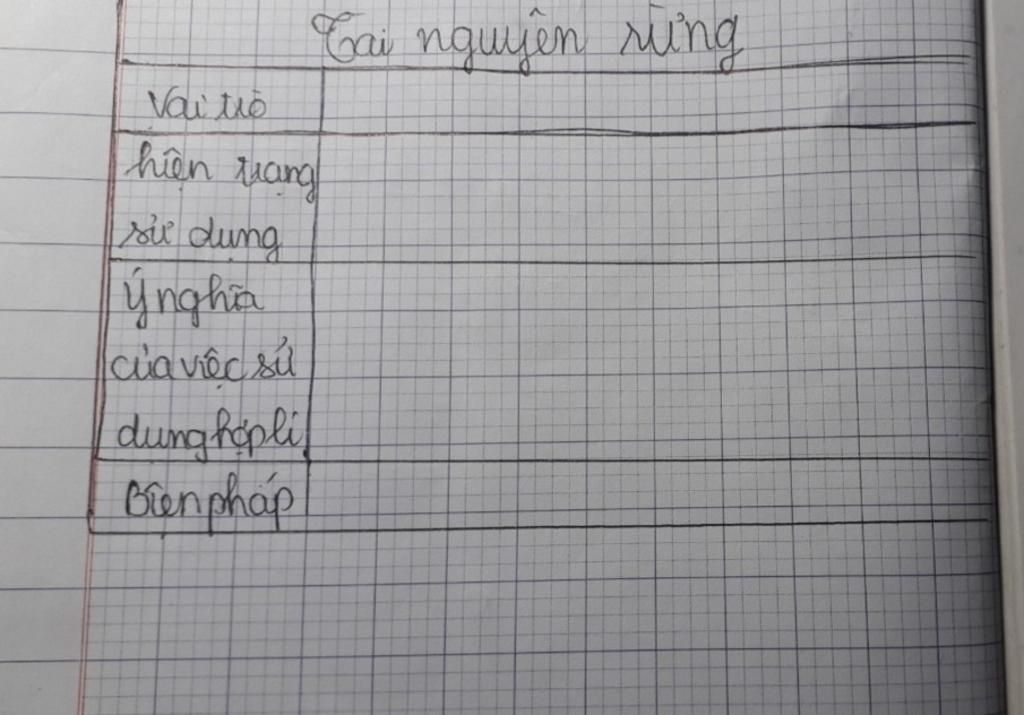 Tài nguyên rừng
Vai trò
hiện trạng
sử dụng
Ý nghĩa
của việc sử
dụng hợp lí
Biện pháp